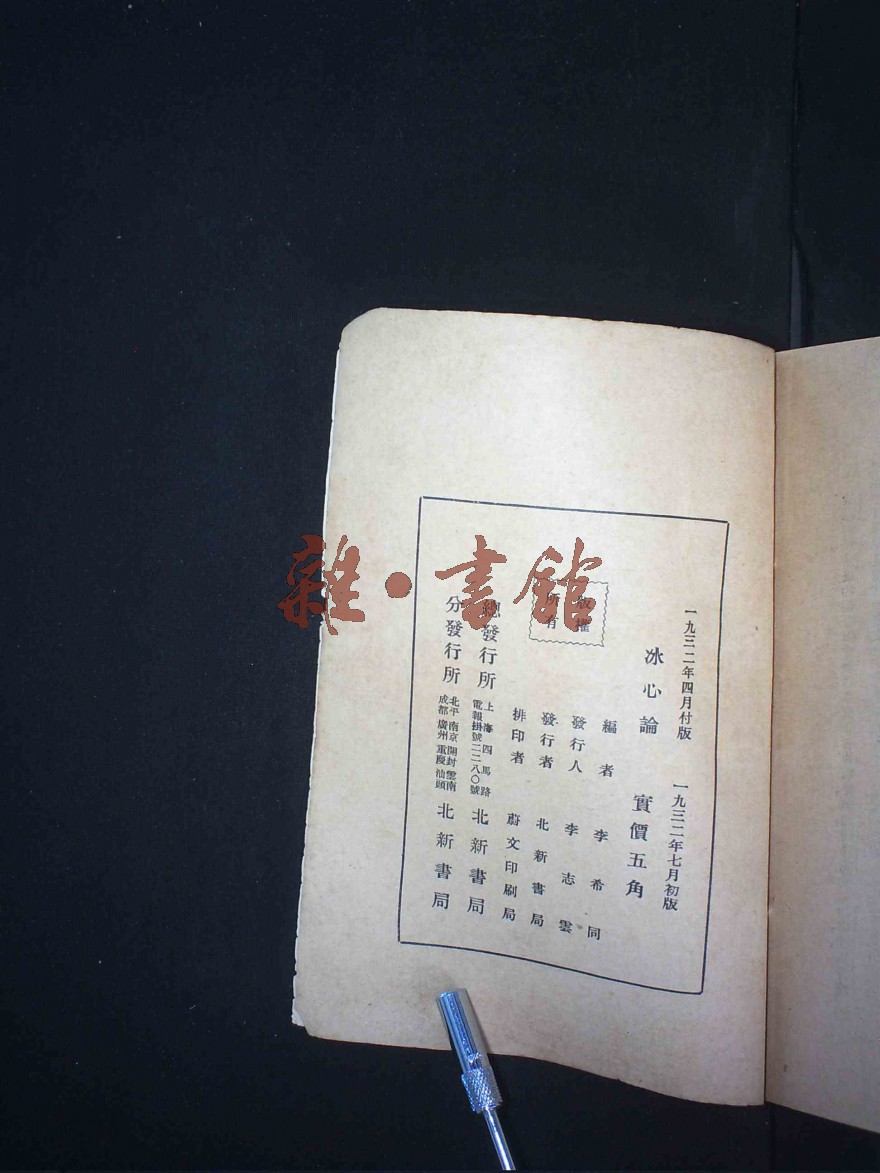 一九三二年四月付版 一九三二年七月初版
冰心論 實價五角
編者 李希同
發行人 李志雲
發行者 北新書局
排印者 蔚文印刷局
版權
所有
總發行所 上海四馬路 電報掛號二二八〇號 北新書局
分發行所 北平南京開封雲南 成都廣州重慶汕頭 北新書局
雜·書館